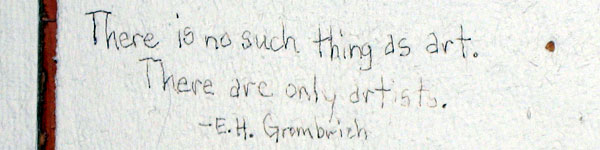 There is no such thing as art.
There are only artists.
-E.H. Grombrich